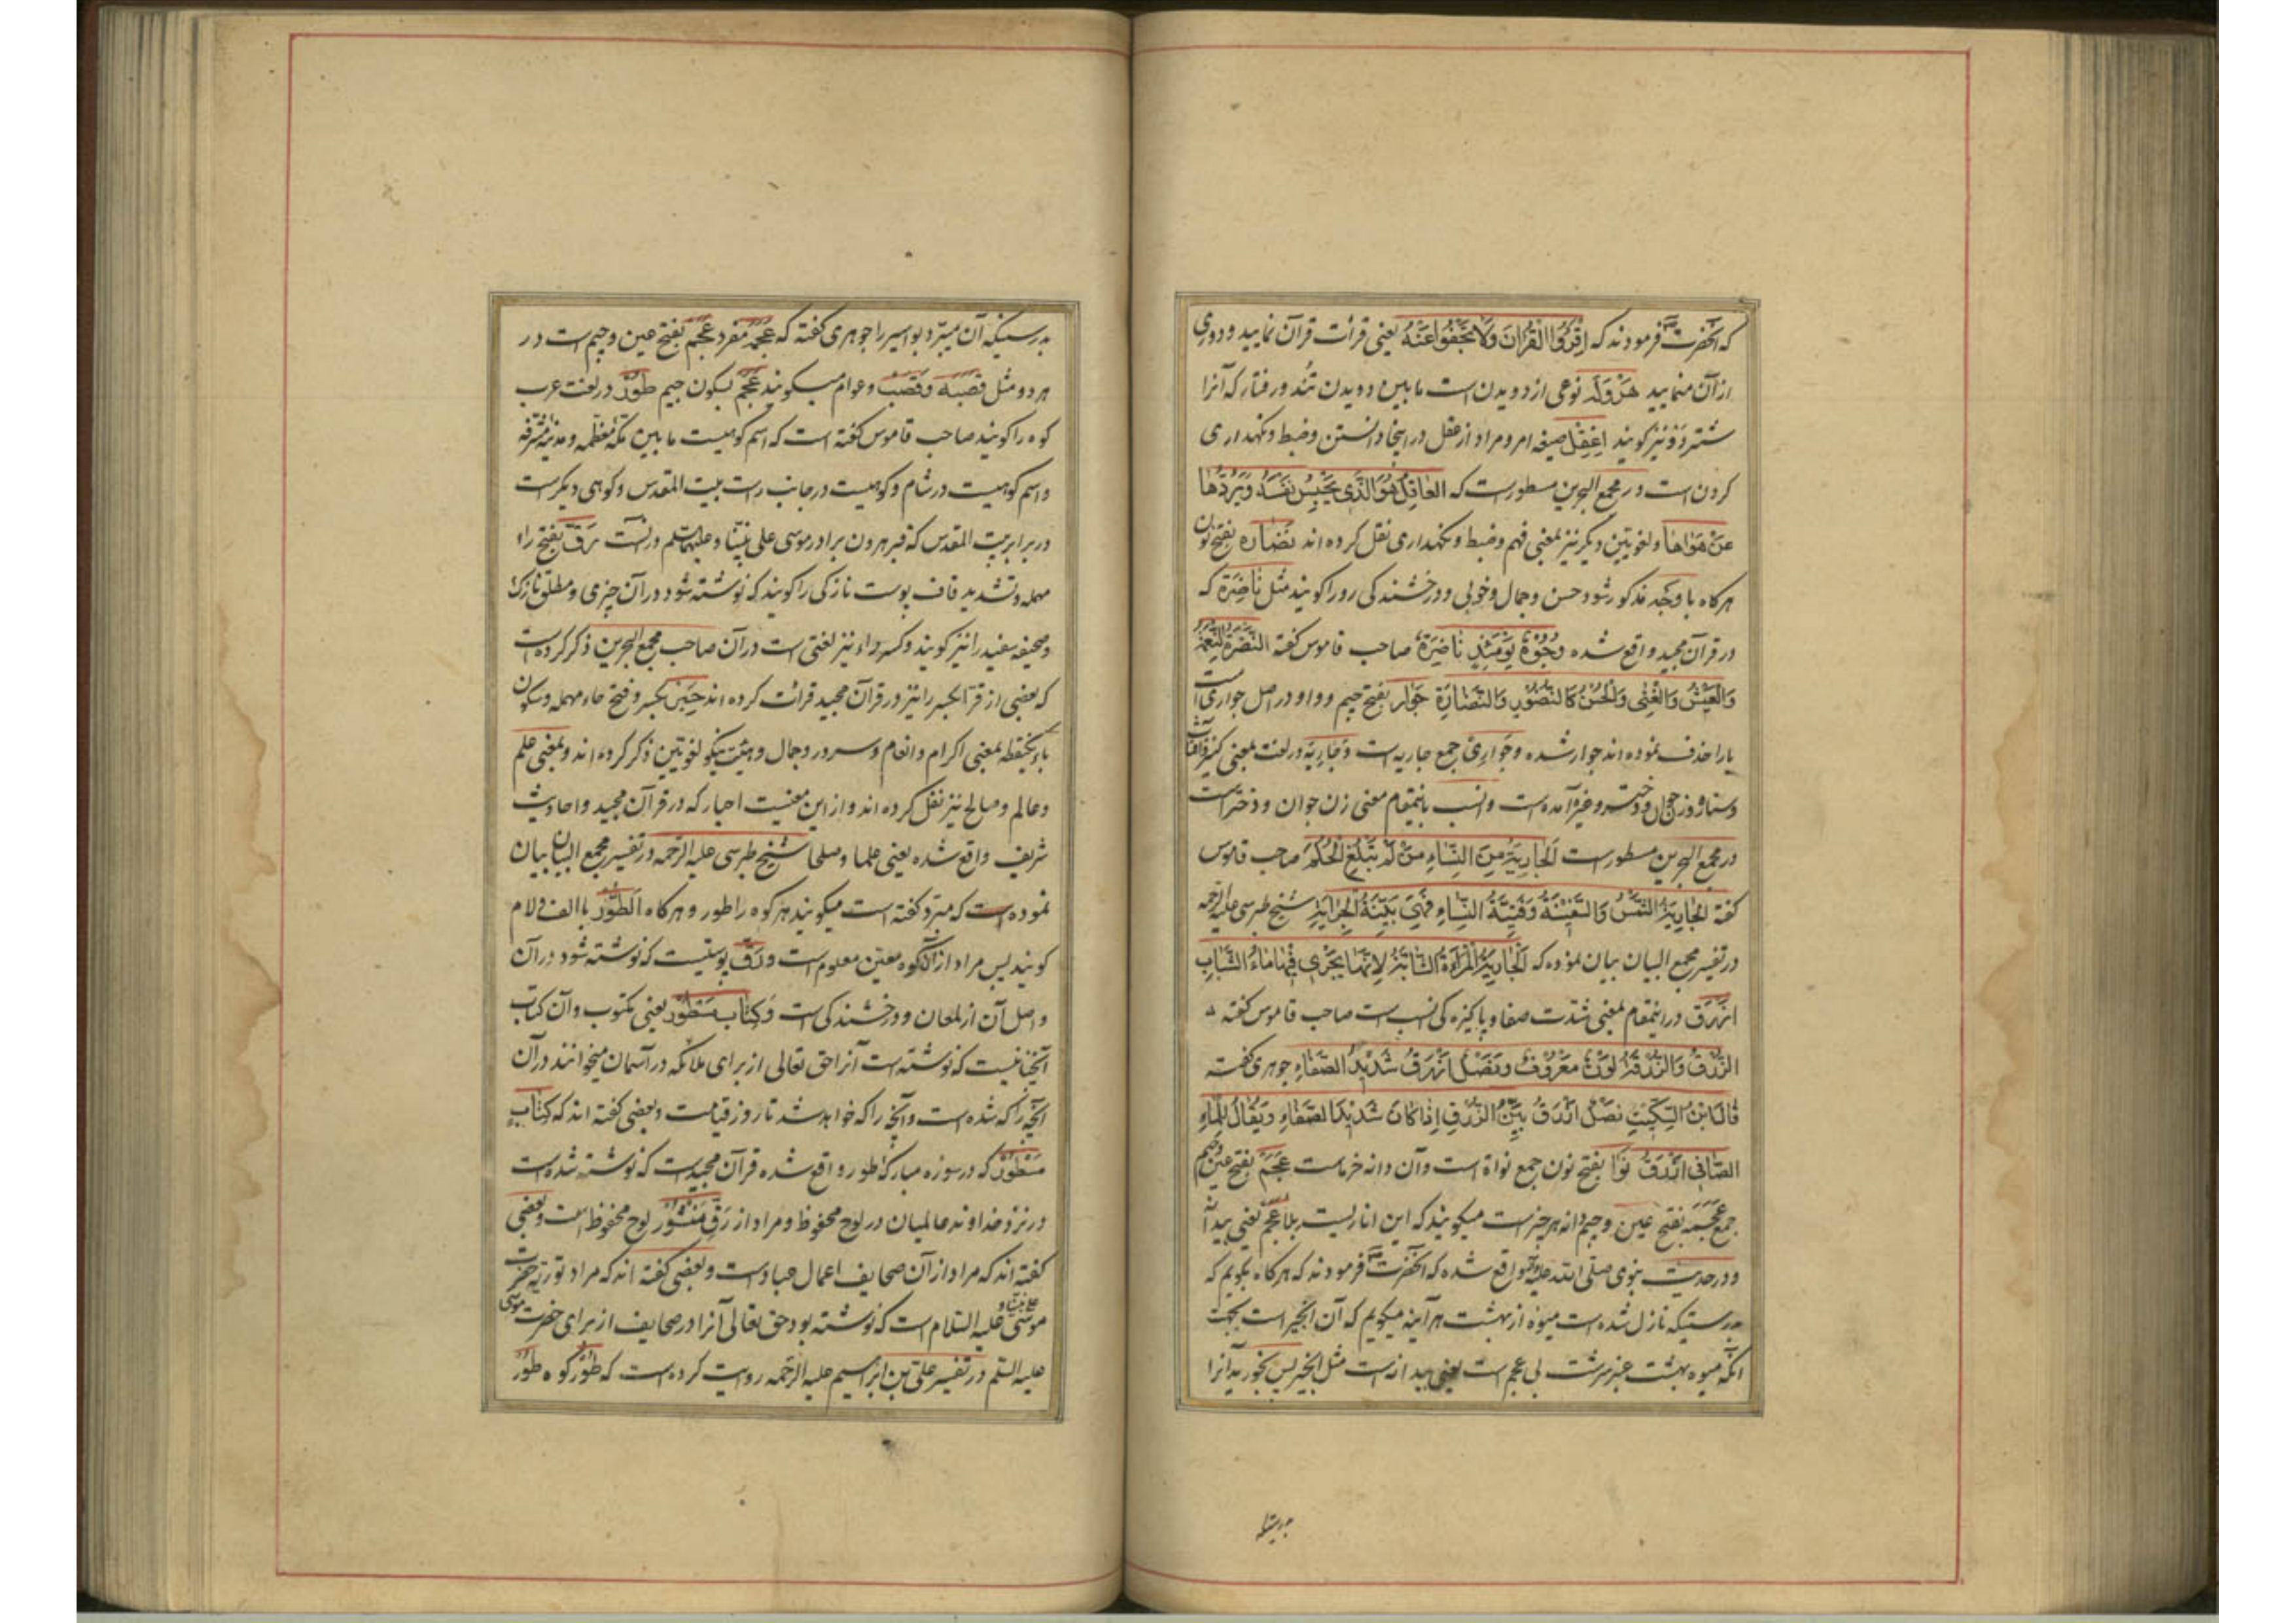 که آنحضرت ص فرمودند که اِقْرَؤُا الْقُرْاٰنَ وَلَا تَجْفُوا عَنْهُ یعنی قرائت قرآن نمایید و دوری
از آن منمایید هَرْوَلَه نوعی از دویدن است مابین دویدن تند و رفتار که آنرا
شتر دَوْ نیز کویند اِعْقِلْ صیغه امر و مراد از عقل در اینجا دانستن وضبط ونکهداری
کردن است در مجمع البحرین مسطور است که العَاقِلُ هُوَ الَّذِی یَحْبِسُ نَفْسَهُ وَیَرُدُّهَا
عَنْ هَوَاهَا ولغویین دیکر نیز بمعنی فهم وضبط ونکهداری نقل کرده اند نَضَارَه بفتح نون
هرکاه با وجه مذکور شود حسن وجمال وخوبی ودرخشندکی رو را کویند مثل نَاضِرَة که
در قرآن مجید واقع شده وُجُوهٌ یَوْمَئِذٍ نَاضِرَةٌ صاحب قاموس کفته النَّضْرَةُ النِّعْمَةُ
وَالْعَیْشُ وَالْغِنٰی وَالْحُسْنُ کَالنُّضُورِ وَالنَّضَارَةِ جَوَار بفتح جیم و واو در اصل جواری است
یا را حذف نموده اند جوار شده وجَوَارِی جمع جاریه است وجَارِیَه در لغت بمعنی کنیز وآفتاب
وستاره وزن جوان ودختر وغیره آمده است وانسب باینمقام معنی زن جوان ودختر است
در مجمع البحرین مسطور است اَلْجَارِیَةُ مِنَ النِّسَاءِ مَنْ لَمْ تَبْلُغِ الْحُلُمَ صاحب قاموس
کفته الْجَارِیَةُ الشَّمْسُ وَالسَّفِینَةُ وَفَتِیَّةُ النِّسَاءِ فَهِیَ بَیِّنَةُ الْجَرَایَةِ شیخ طبرسی علیه الرحمه
در تفسیر مجمع البیان بیان نموده که اَلْجَارِیَةُ الْمَرْاَةُ الشَّابَّةُ لِاَنَّهَا یَجْرِی فِیهَا مَاءُ الشَّبَابِ
اَزْرَق در اینمقام بمعنی شدت صفا وپاکیزه کی انسب است صاحب قاموس کفته
الزَّرَقُ وَالزُّرْقَةُ لَوْنٌ مَعْرُوفٌ وَنَصْلٌ اَزْرَقُ شَدِیدُ الصَّفَاءِ جوهری کفته
قَالَ ابْنُ السِّکِّیتِ نَصْلٌ اَزْرَقُ بَیِّنُ الزَّرَقِ اِذَا کَانَ شَدِیدَ الصَّفَاءِ وَیُقَالُ لِلْمَاءِ
الصَّافِی اَزْرَقُ نَوَا بفتح نون جمع نواة است وآن دانه خرماست عَجَم بفتح عین وجیم
جمع عَجَمَه بفتح عین وجیم دانه هر چیز است میکویند که این انار یست بلا عَجَم یعنی بیدانه
ودر حدیث نبوی صلی الله علیه وآله واقع شده که آنحضرت ص فرمودند که هرکاه بکویم که
بدرستیکه نازل شده است میوه از بهشت هر آینه میکویم که آن انجیر است بجهت
آنکه میوه بهشت عنبر سرشت بی عجم است یعنی بیدانه است مثل انجیر پس بخورید آنرا
بدرستیکه
بدرستیکه آن میبرد بواسیر را جوهری کفته که عَجَمَه مفرد عَجَم بفتح عین وجیم است در
هر دو مثل قَصَبَه وقَصَب وعوام میکویند عَجْم بسکون جیم طُور در لغت عرب
کوه را کویند صاحب قاموس کفته است که اسم کوهیست مابین مکه معظمه ومدینه مشرفه
واسم کوهیست در شام وکوهیست در جانب راست بیت المقدس وکوهی دیکر است
در برابر بیت المقدس که قبر هرون برادر موسی علی نبینا وعلیهما السلم در آنست رَقّ بفتح راء
مهمله وتشدید قاف پوست نازکی را کویند که نوشته شود در آن چیزی ومطلق نازک
وصحیفه سفید را نیز کویند وکسر راء نیز لغتی است در آن صاحب مجمع البحرین ذکر کرده است
که بعضی از قرا بکسر را نیز در قرآن مجید قرائت کرده اند حِبْر بکسر وفتح حاء مهمله وسکون
باء یکنقطه بمعنی اکرام وانعام وسرور وجمال وهیئت نیکو لغویین ذکر کرده اند وبمعنی علم
وعالم وصالح نیز نقل کرده اند واز این معنیست احبار که در قرآن مجید واحادیث
شریف واقع شده یعنی علما وصلحا شیخ طبرسی علیه الرحمه در تفسیر مجمع البیان بیان
نموده است که مبرد کفته است میکویند هر کوه را طور وهرکاه اَلطُّور با الف ولام
کویند پس مراد از آن کوه معین معلوم است ورَقّ پوستیست که نوشته شود در آن
واصل آن از لمعان ودرخشندکی است وَکِتَابٍ مَسْطُورٍ یعنی مکتوب وآن کتاب
آنچنانیست که نوشته است آنرا حق تعالی از برای ملائکه در آسمان میخوانند در آن
آنچه را که شده است وآنچه را که خواهد شد تا روز قیامت وبعضی کفته اند که کِتَابٍ
مَسْطُورٍ که در سوره مبارکه طور واقع شده قرآن مجید است که نوشته شده است
در نزد خداوند عالمیان در لوح محفوظ ومراد از رَقٍّ مَنْشُور لوح محفوظ است وبعضی
کفته اند که مراد از آن صحایف اعمال عباد است وبعضی کفته اند که مراد توریة حضرت
موسی علی نبینا و علیه السلام است که نوشته بود حق تعالی آنرا در صحایف از برای حضرت موسی
علیه السلم در تفسیر علی بن ابراهیم علیه الرحمه روایت کرده است که طُور کوه طور